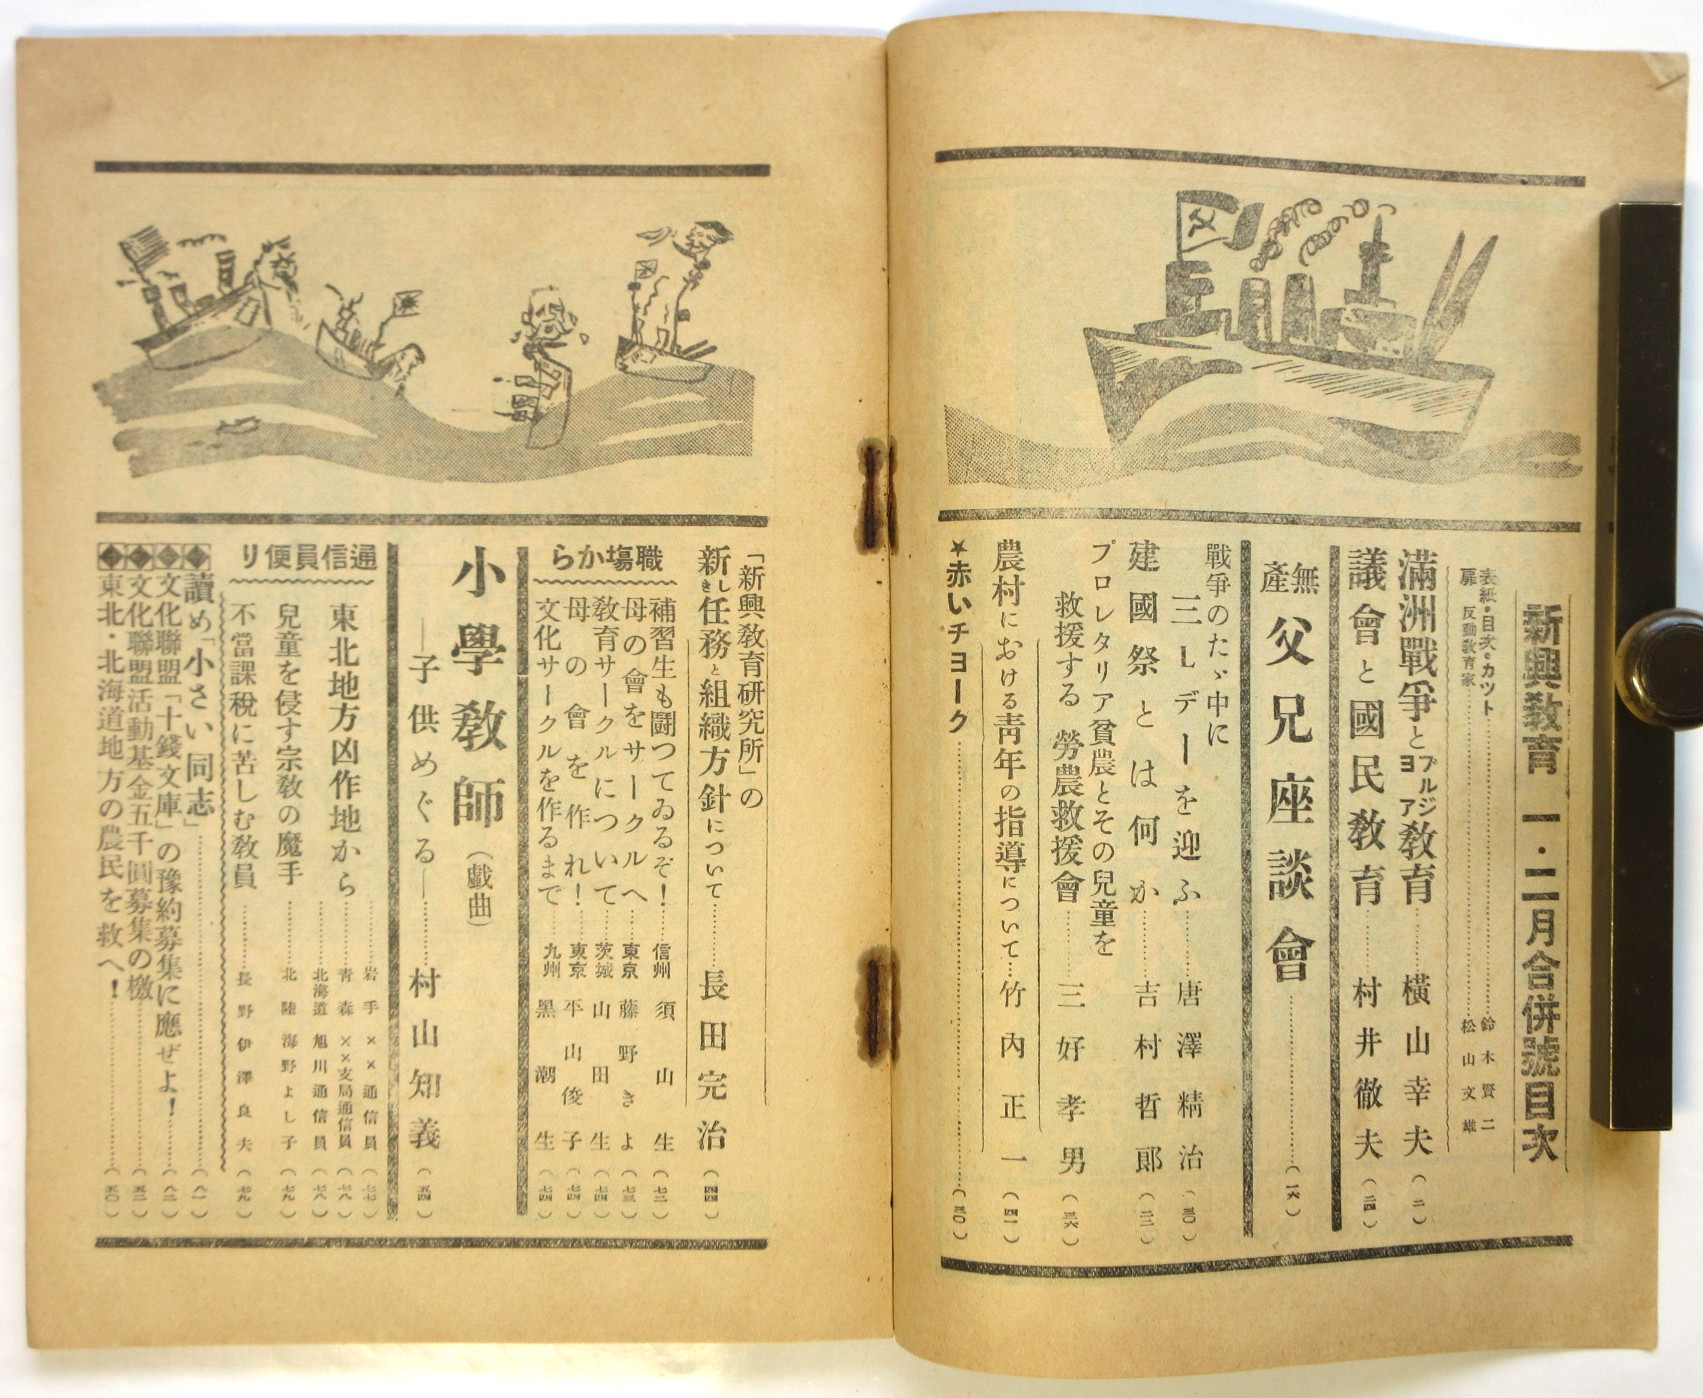 新興敎育 一・二月合併號目次
表紙・目次・カツト……鈴木賢二
扉 反動敎育家……松山文雄
滿洲戰爭とブルジヨア敎育……橫山幸夫(二)
議會と國民敎育……村井徹夫(二四)
無產父兄座談會……(一六)
戰爭のたゞ中に
三Lデーを迎ふ……唐澤精治(三〇)
建國祭とは何か……吉村哲郞(二二)
プロレタリア貧農とその兒童を
救援する 勞農救援會……三好孝男(三六)
農村における靑年の指導について…竹內正一(四一)
★赤いチヨーク……(三〇)
「新興敎育硏究所」の
新しき任務と組織方針について……長田完治(四四)
職場から
補習生も鬪つてゐるぞ!……信州 須山生(七二)
母の會をサークルへ……東京 藤野きよ(七三)
敎育サークルについて……茨城 山田生(七四)
母の會を作れ!……東京 平山俊子(七四)
文化サークルを作るまで……九州 黑潮生(七四)
小學敎師(戲曲)
―子供めぐる―……村山知義(五四)
通信員便り
東北地方凶作地から
……岩手 ××通信員(七七)
……靑森 ××支局通信員(七八)
……北海道 旭川通信員(七八)
兒童を侵す宗敎の魔手……北陸 海野よし子(七九)
不當課稅に苦しむ敎員……長野 伊澤良夫(七九)
讀め「小さい同志」……(八一)
文化聯盟「十錢文庫」の豫約募集に應ぜよ!……(八二)
文化聯盟活動基金五千圓募集の檄……(五三)
東北・北海道地方の農民を救へ!……(五〇)